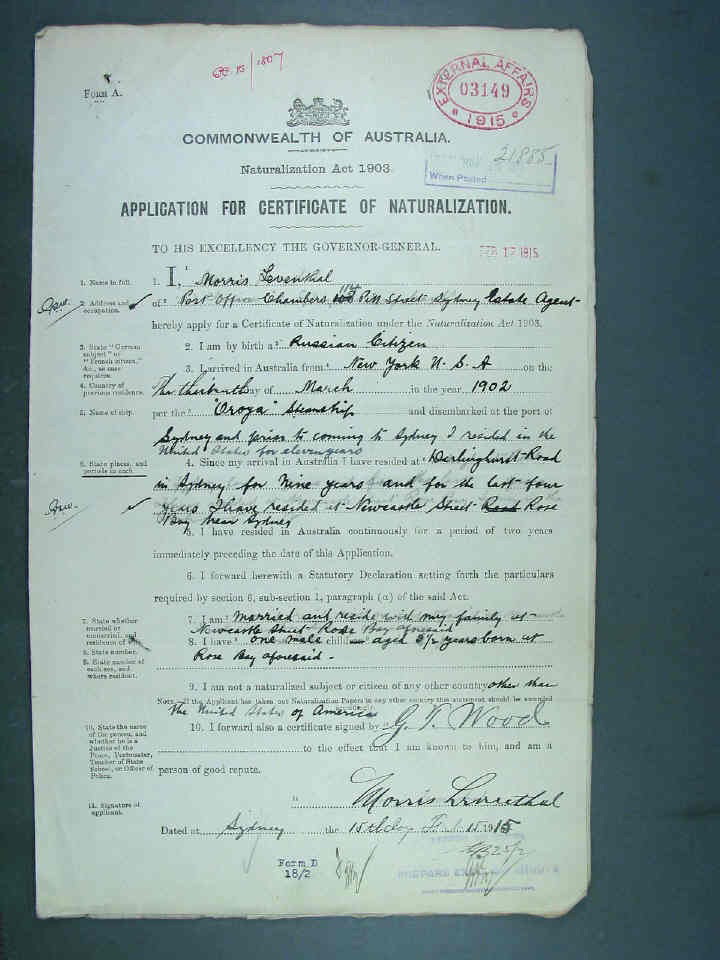 15/1807
Form A.
EXTERNAL AFFAIRS
03149
1915
COMMONWEALTH OF AUSTRALIA.
Naturalization Act 1903.
21885
When Posted
APPLICATION FOR CERTIFICATE OF NATURALIZATION.
TO HIS EXCELLENCY THE GOVERNOR-GENERAL.
FEB 17 1915
1. Name in full.
1. I, Morris Leventhal
2. Address and occupation.
of Post Office Chambers 114 Pitt Street Sydney Estate Agent
hereby apply for a Certificate of Naturalization under the Naturalization Act 1903.
3. State "German subject" or "French citizen," &c., as case requires.
2. I am by birth a Russian Citizen
3. I arrived in Australia from New York U.S.A on the
4. Country of previous residence.
The thirteenth day of March in the year 1902
5. Name of ship.
per the "Oroya" Steamship and disembarked at the port of
Sydney and prior to coming to Sydney I resided in the
United States for eleven years
6. State places, and periods in each.
4. Since my arrival in Australia I have resided at Darlinghurst Road
in Sydney for Nine years and for the last four
years I have resided at Newcastle Street Road Rose
Bay near Sydney
5. I have resided in Australia continuously for a period of two years
immediately preceding the date of this Application.
6. I forward herewith a Statutory Declaration setting forth the particulars
required by section 6, sub-section 1, paragraph (a) of the said Act.
7. State whether married or unmarried, and residence of wife.
7. I am married and reside with my family at
Newcastle Street Rose Bay aforesaid
8. State number.
8. I have one male children aged 3½ years born at
9. State number of each sex, and where resident.
Rose Bay aforesaid -
9. I am not a naturalized subject or citizen of any other country other than
Note.-If the Applicant has taken out Naturalization Papers in any other country this statement should be amended
the United States of America
10. State the name of the person, and whether he is a Justice of the Peace, Postmaster, Teacher of State School, or Officer of Police.
10. I forward also a certificate signed by G. T. Wood
to the effect that I am known to him, and am a
person of good repute.
11. Signature of applicant.
Morris Leventhal
Dated at Sydney the 15th day Feb 1915
Form D
18/2
25/2
PREPARE